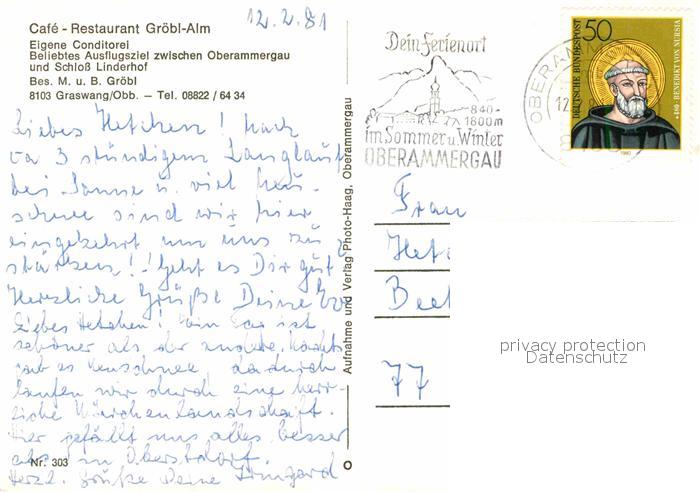 12.2.81
Café - Restaurant Gröbl-Alm
Eigene Conditorei
Beliebtes Ausflugsziel zwischen Oberammergau
und Schloß Linderhof
Bes. M. u. B. Gröbl
8103 Graswang/Obb. – Tel. 08822 / 64 34
Liebes Hetchen! Nach
ca 3 stündigem Langlauf
bei Sonne u. viel Neu-
schnee sind wir hier
eingekehrt um uns zu
stärken! Geht es Dir gut?
Herzliche Grüße Deine
Liebes Hetchen! Ein Tag ist
schöner als der andere. Nachts
gab es Neuschnee, dadurch
laufen wir durch eine herr-
liche Märchenlandschaft.
Hier gefällt uns alles besser
als in Oberstdorf.
Herzl. Grüße Deine Irmgard
Nr. 303
Aufnahme und Verlag Photo-Haag, Oberammergau
Dein Ferienort
840-
1800m
im Sommer u. Winter
OBERAMMERGAU
OBERAMM
12.
DEUTSCHE BUNDESPOST
50
480 · BENEDIKT VON NURSIA
1980
Frau
Het
Beet
77
privacy protection
Datenschutz